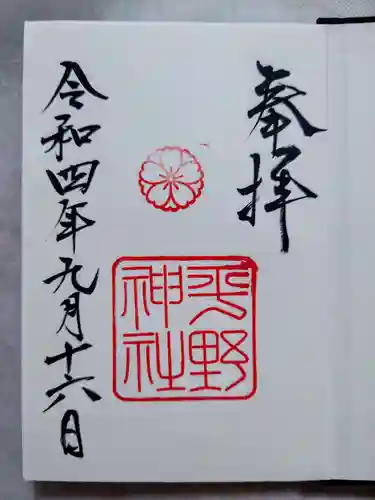 奉拝
平野
神社
令和四年九月十六日